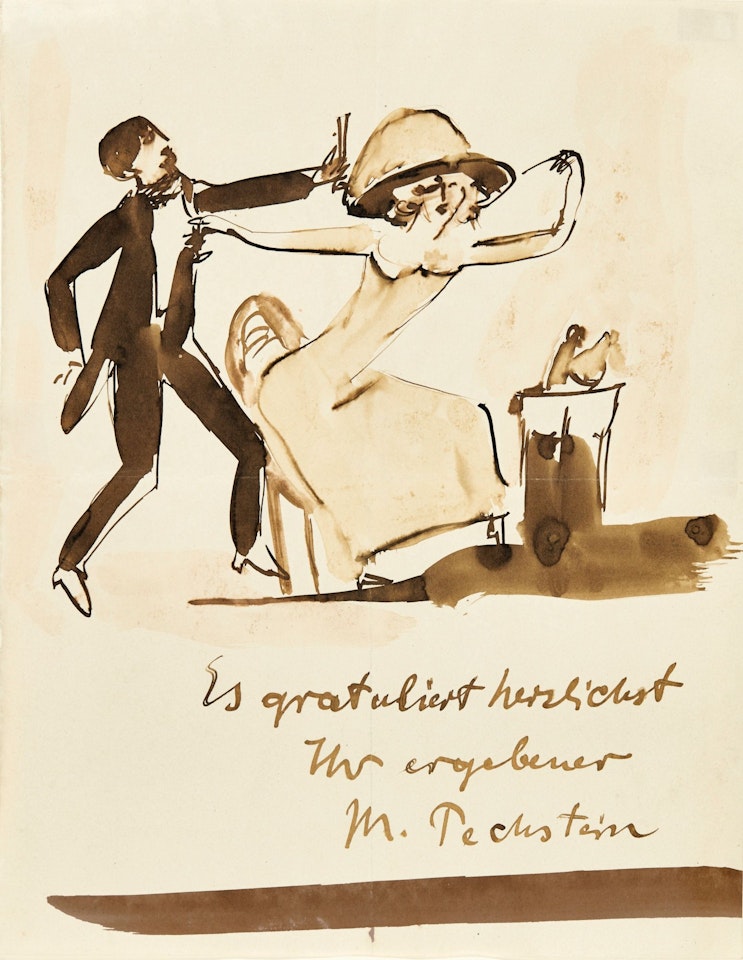 Es gratuliert herzlichst
Ihr ergebener
M. Pechstein